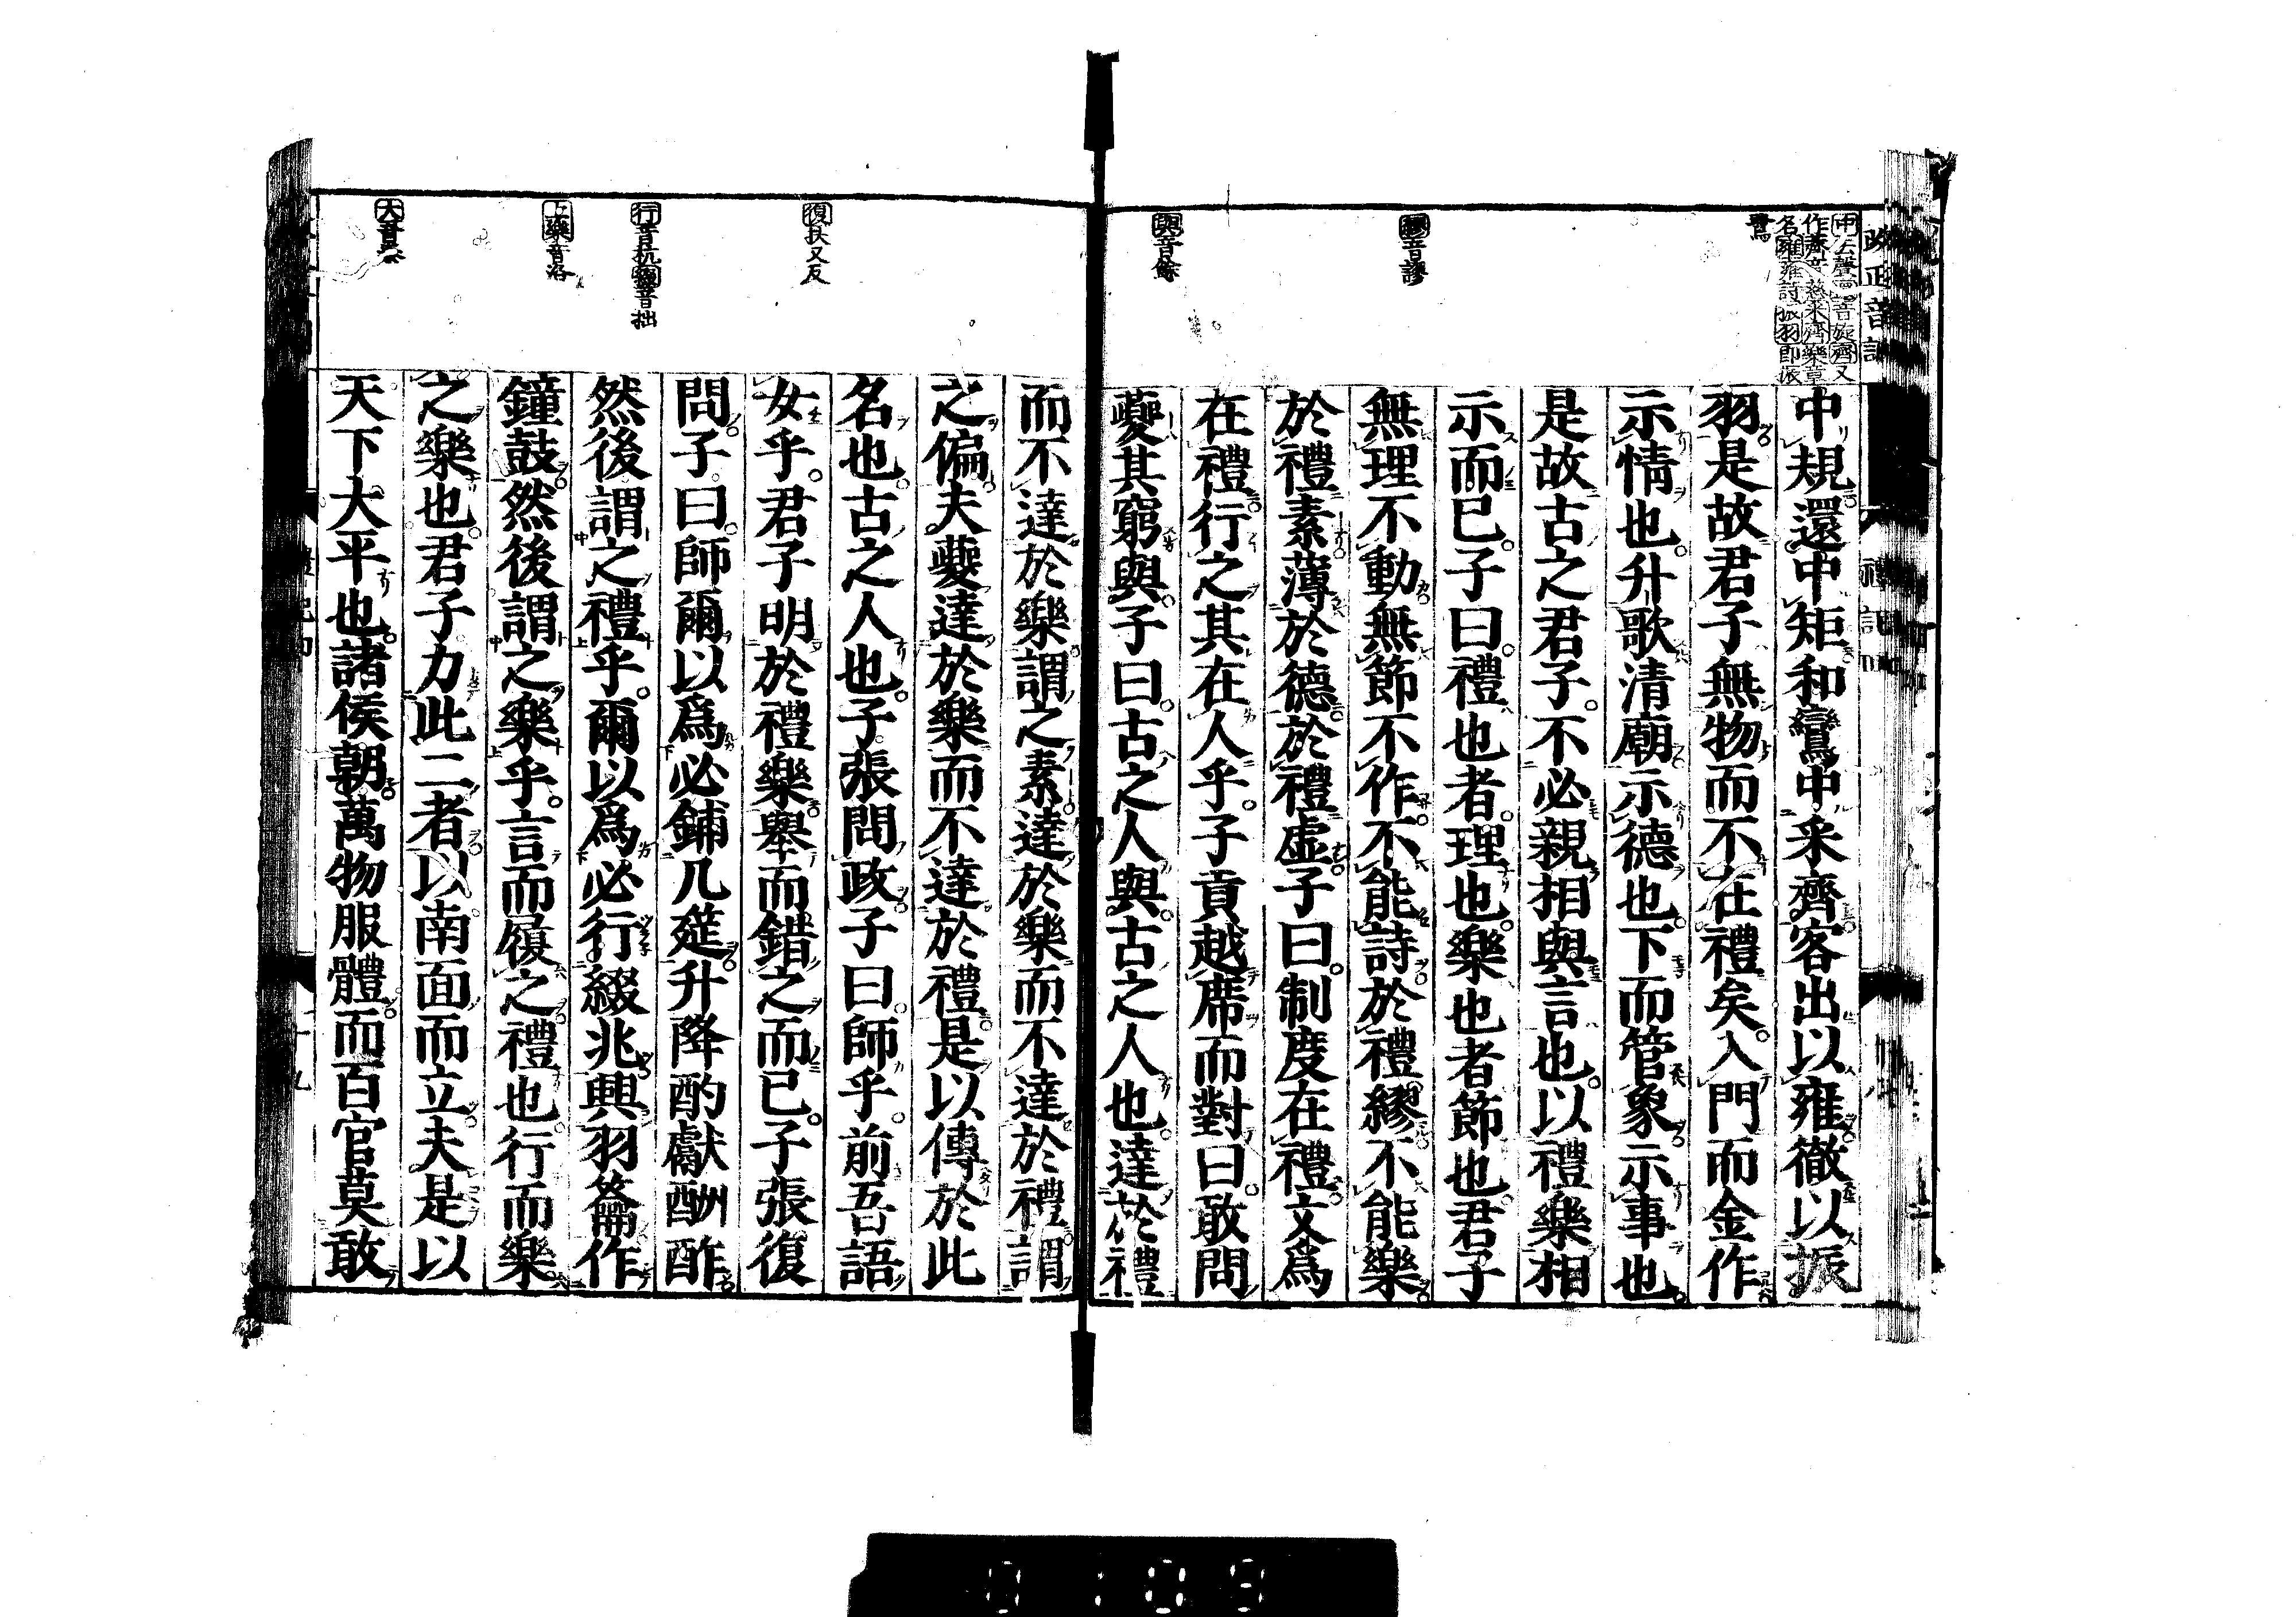 中規還中矩和鸞中采齊客出以雍徹以振
羽是故君子無物而不在禮矣入門而金作
示情也升歌清廟示德也下而管象示事也
是故古之君子不必親相與言也以禮樂相
示而已子曰禮也者理也樂也者節也君子
無理不動無節不作不能詩於禮繆不能樂
於禮素薄於德於禮虛子曰制度在禮文爲
在禮行之其在人乎子貢越席而對曰敢問
夔其窮與子曰古之人與古之人也達於禮
而不達於樂謂之素達於樂而不達於禮謂
之偏夫夔達於樂而不達於禮是以傳於此
名也古之人也子張問政子曰師乎前吾語
女乎君子明於禮樂舉而錯之而已子張復
問子曰師爾以爲必鋪几筵升降酌獻酬酢
然後謂之禮乎爾以爲必行綴兆興羽籥作
鐘鼓然後謂之樂乎言而履之禮也行而樂
之樂也君子力此二者以南面而立夫是以
天下大平也諸侯朝萬物服體而百官莫敢
繆音謬
與音餘
復扶又反
行音抗綴音拙
樂音洛
大音泰